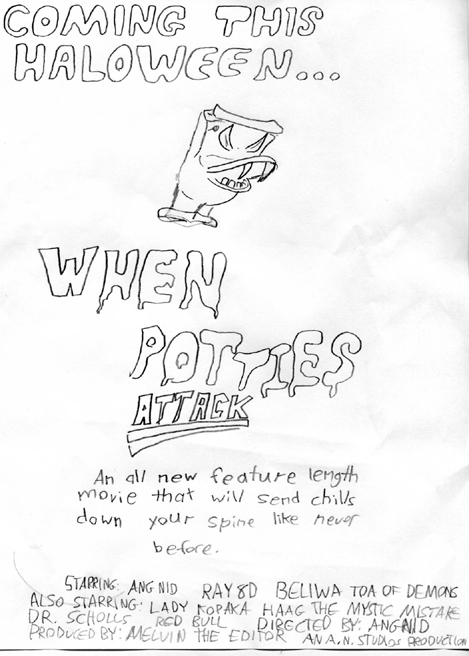 COMING THIS
HALOWEEN...
WHEN
POTTIES
ATTACK
An all new feature length
movie that will send chills
down your spine like never
before.
STARRING: ANGNID RAY8D BELIWA TOA OF DEMONS
ALSO STARRING: LADY KOPAKA HAAG THE MYSTIC MISTAKE
DR. SCHOLLS RED BULL DIRECTED BY: ANGNID
PRODUCED BY: MELVIN THE EDITOR AN A.N. STUDIOS PRODUCTION